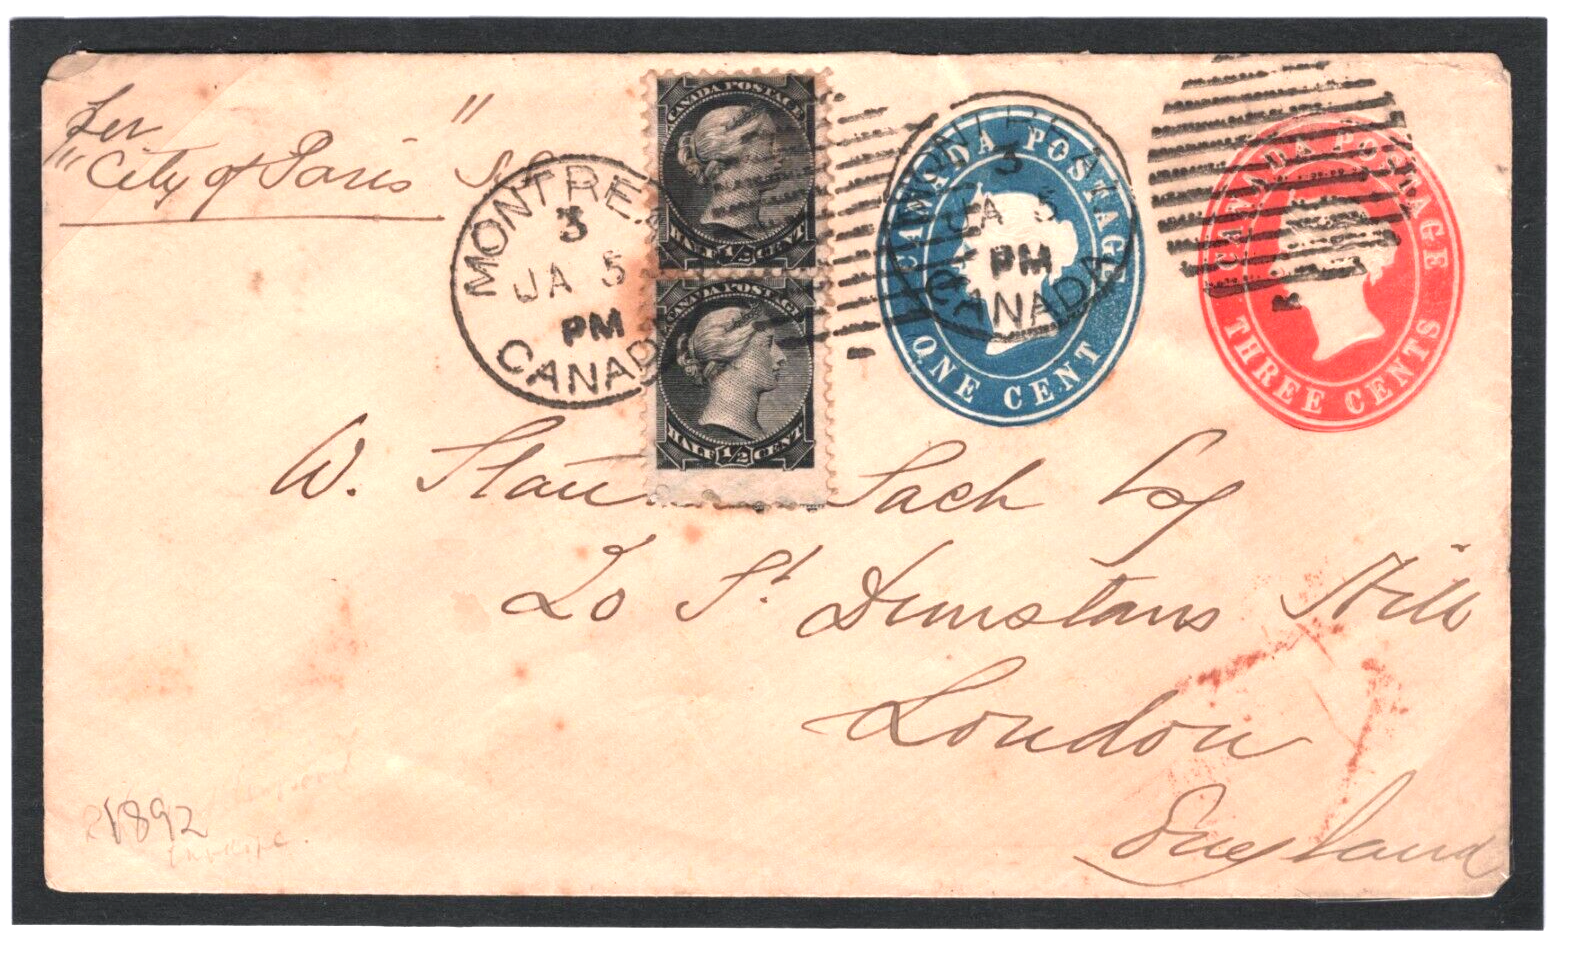 per
"City of Paris" S.S.
MONTREAL
3
JA 5
PM
CANADA
CANADA POSTAGE
HALF 1/2 CENT
CANADA POSTAGE
HALF 1/2 CENT
MONTREAL
3
JA 5
PM
CANADA
CANADA POSTAGE
ONE CENT
CANADA POSTAGE
THREE CENTS
W. Sach Esq
20 St. Dunstans Hill
London
England
1892
envelope.